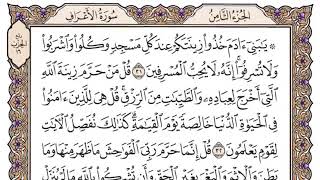 الجزء الثامن
سورة الأعراف
۞ يَٰبَنِىٓ ءَادَمَ خُذُوا۟ زِينَتَكُمْ عِندَ كُلِّ مَسْجِدٍ وَكُلُوا۟ وَٱشْرَبُوا۟
وَلَا تُسْرِفُوٓا۟ ۚ إِنَّهُۥ لَا يُحِبُّ ٱلْمُسْرِفِينَ ٣١ قُلْ مَنْ حَرَّمَ زِينَةَ ٱللَّهِ
ٱلَّتِىٓ أَخْرَجَ لِعِبَادِهِۦ وَٱلطَّيِّبَٰتِ مِنَ ٱلرِّزْقِ ۚ قُلْ هِىَ لِلَّذِينَ ءَامَنُوا۟
فِى ٱلْحَيَوٰةِ ٱلدُّنْيَا خَالِصَةً يَوْمَ ٱلْقِيَٰمَةِ ۗ كَذَٰلِكَ نُفَصِّلُ ٱلْءَايَٰتِ
لِقَوْمٍ يَعْلَمُونَ ٣٢ قُلْ إِنَّمَا حَرَّمَ رَبِّىَ ٱلْفَوَٰحِشَ مَا ظَهَرَ مِنْهَا وَمَا
بَطَنَ وَٱلْإِثْمَ وَٱلْبَغْىَ بِغَيْرِ ٱلْحَقِّ وَأَن تُشْرِكُوا۟ بِٱللَّهِ مَا لَمْ يُنَزِّلْ